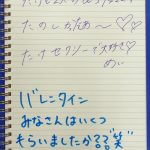 たのしかったぁ〜♡♡
たけセクシーで大好き♡
めい
バレンタイン
みなさんはいくつ
もらいましたか??笑"